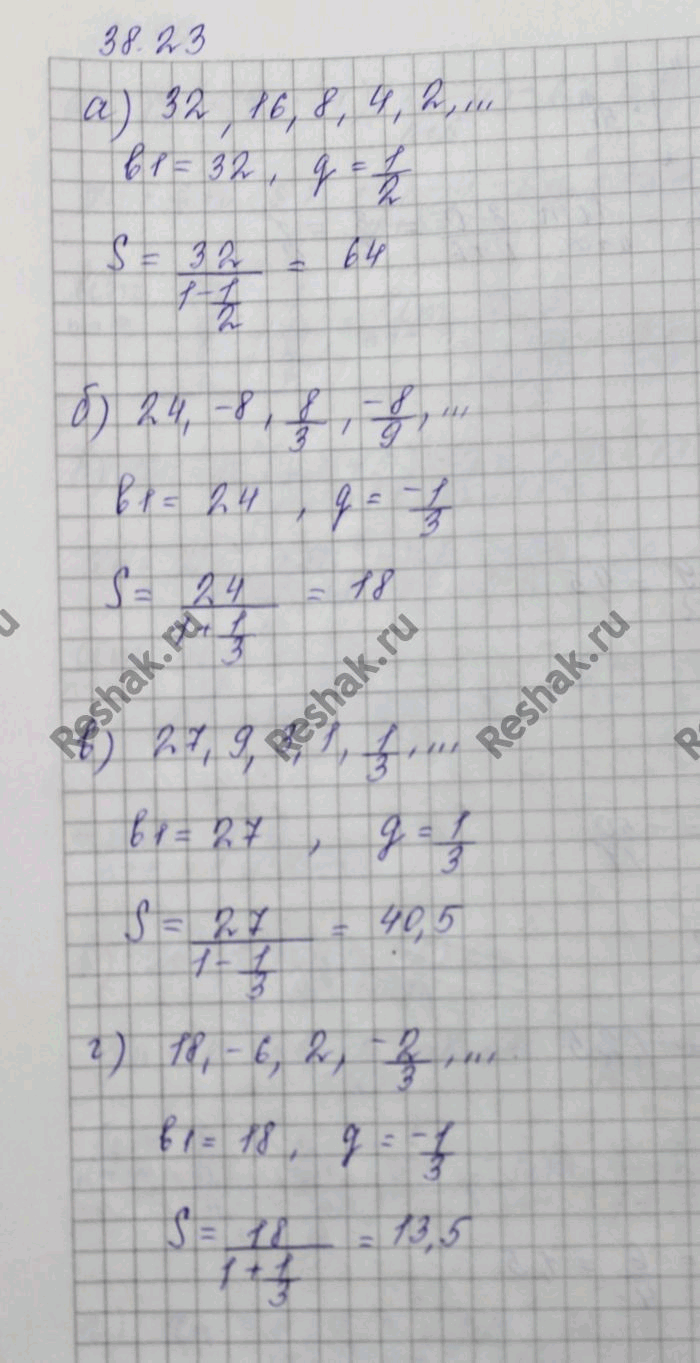 38.23
а) 32, 16, 8, 4, 2, ...
b1 = 32, q = 1/2
S = 32/(1 - 1/2) = 64
б) 24, -8, 8/3, -8/9, ...
b1 = 24, q = -1/3
S = 24/(1 + 1/3) = 18
Reshak.ru Reshak.ru Reshak.ru
в) 27, 9, 3, 1, 1/3, ...
b1 = 27, q = 1/3
S = 27/(1 - 1/3) = 40,5
г) 18, -6, 2, -2/3, ...
b1 = 18, q = -1/3
S = 18/(1 + 1/3) = 13,5